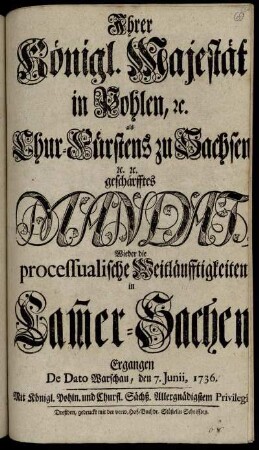 Ihrer
Königl. Majestät
in Pohlen, ꝛc.
als
Chur-Fürstens zu Sachsen
ꝛc. ꝛc.
geschärfftes
MANDAT,
Wieder die
processualische Weitläufftigkeiten
in
Cam̅er-Sachen
Ergangen
De Dato Warschau, den 7. Junii, 1736.
Mit Königl. Pohln. und Churfl. Sächß. Allergnädigstem Privilegio
Dreßden, gedruckt mit der verw. Hof-Buchdr. Stößelin Schrifften.